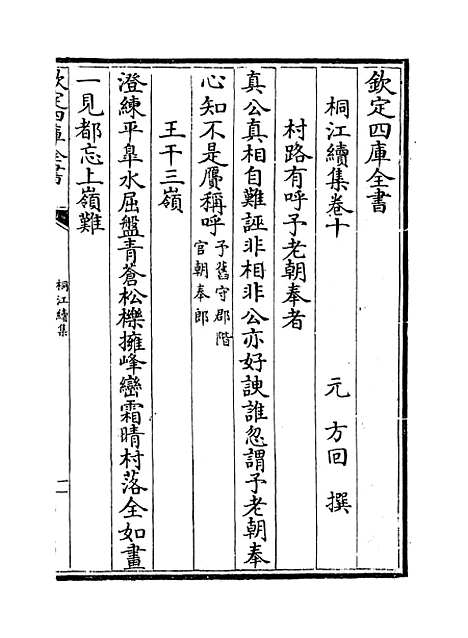 欽定四庫全書
桐江續集卷十
元 方回 撰
村路有呼予老朝奉者
真公真相自難誣非相非公亦好諛誰忽謂予老朝奉
心知不是贋稱呼予舊守郡階
官朝奉郎
王干三嶺
澄練平臯水屈盤青蒼松櫟擁峰巒霜晴村落全如畫
一見都忘上嶺難
欽定四庫全書
桐江續集